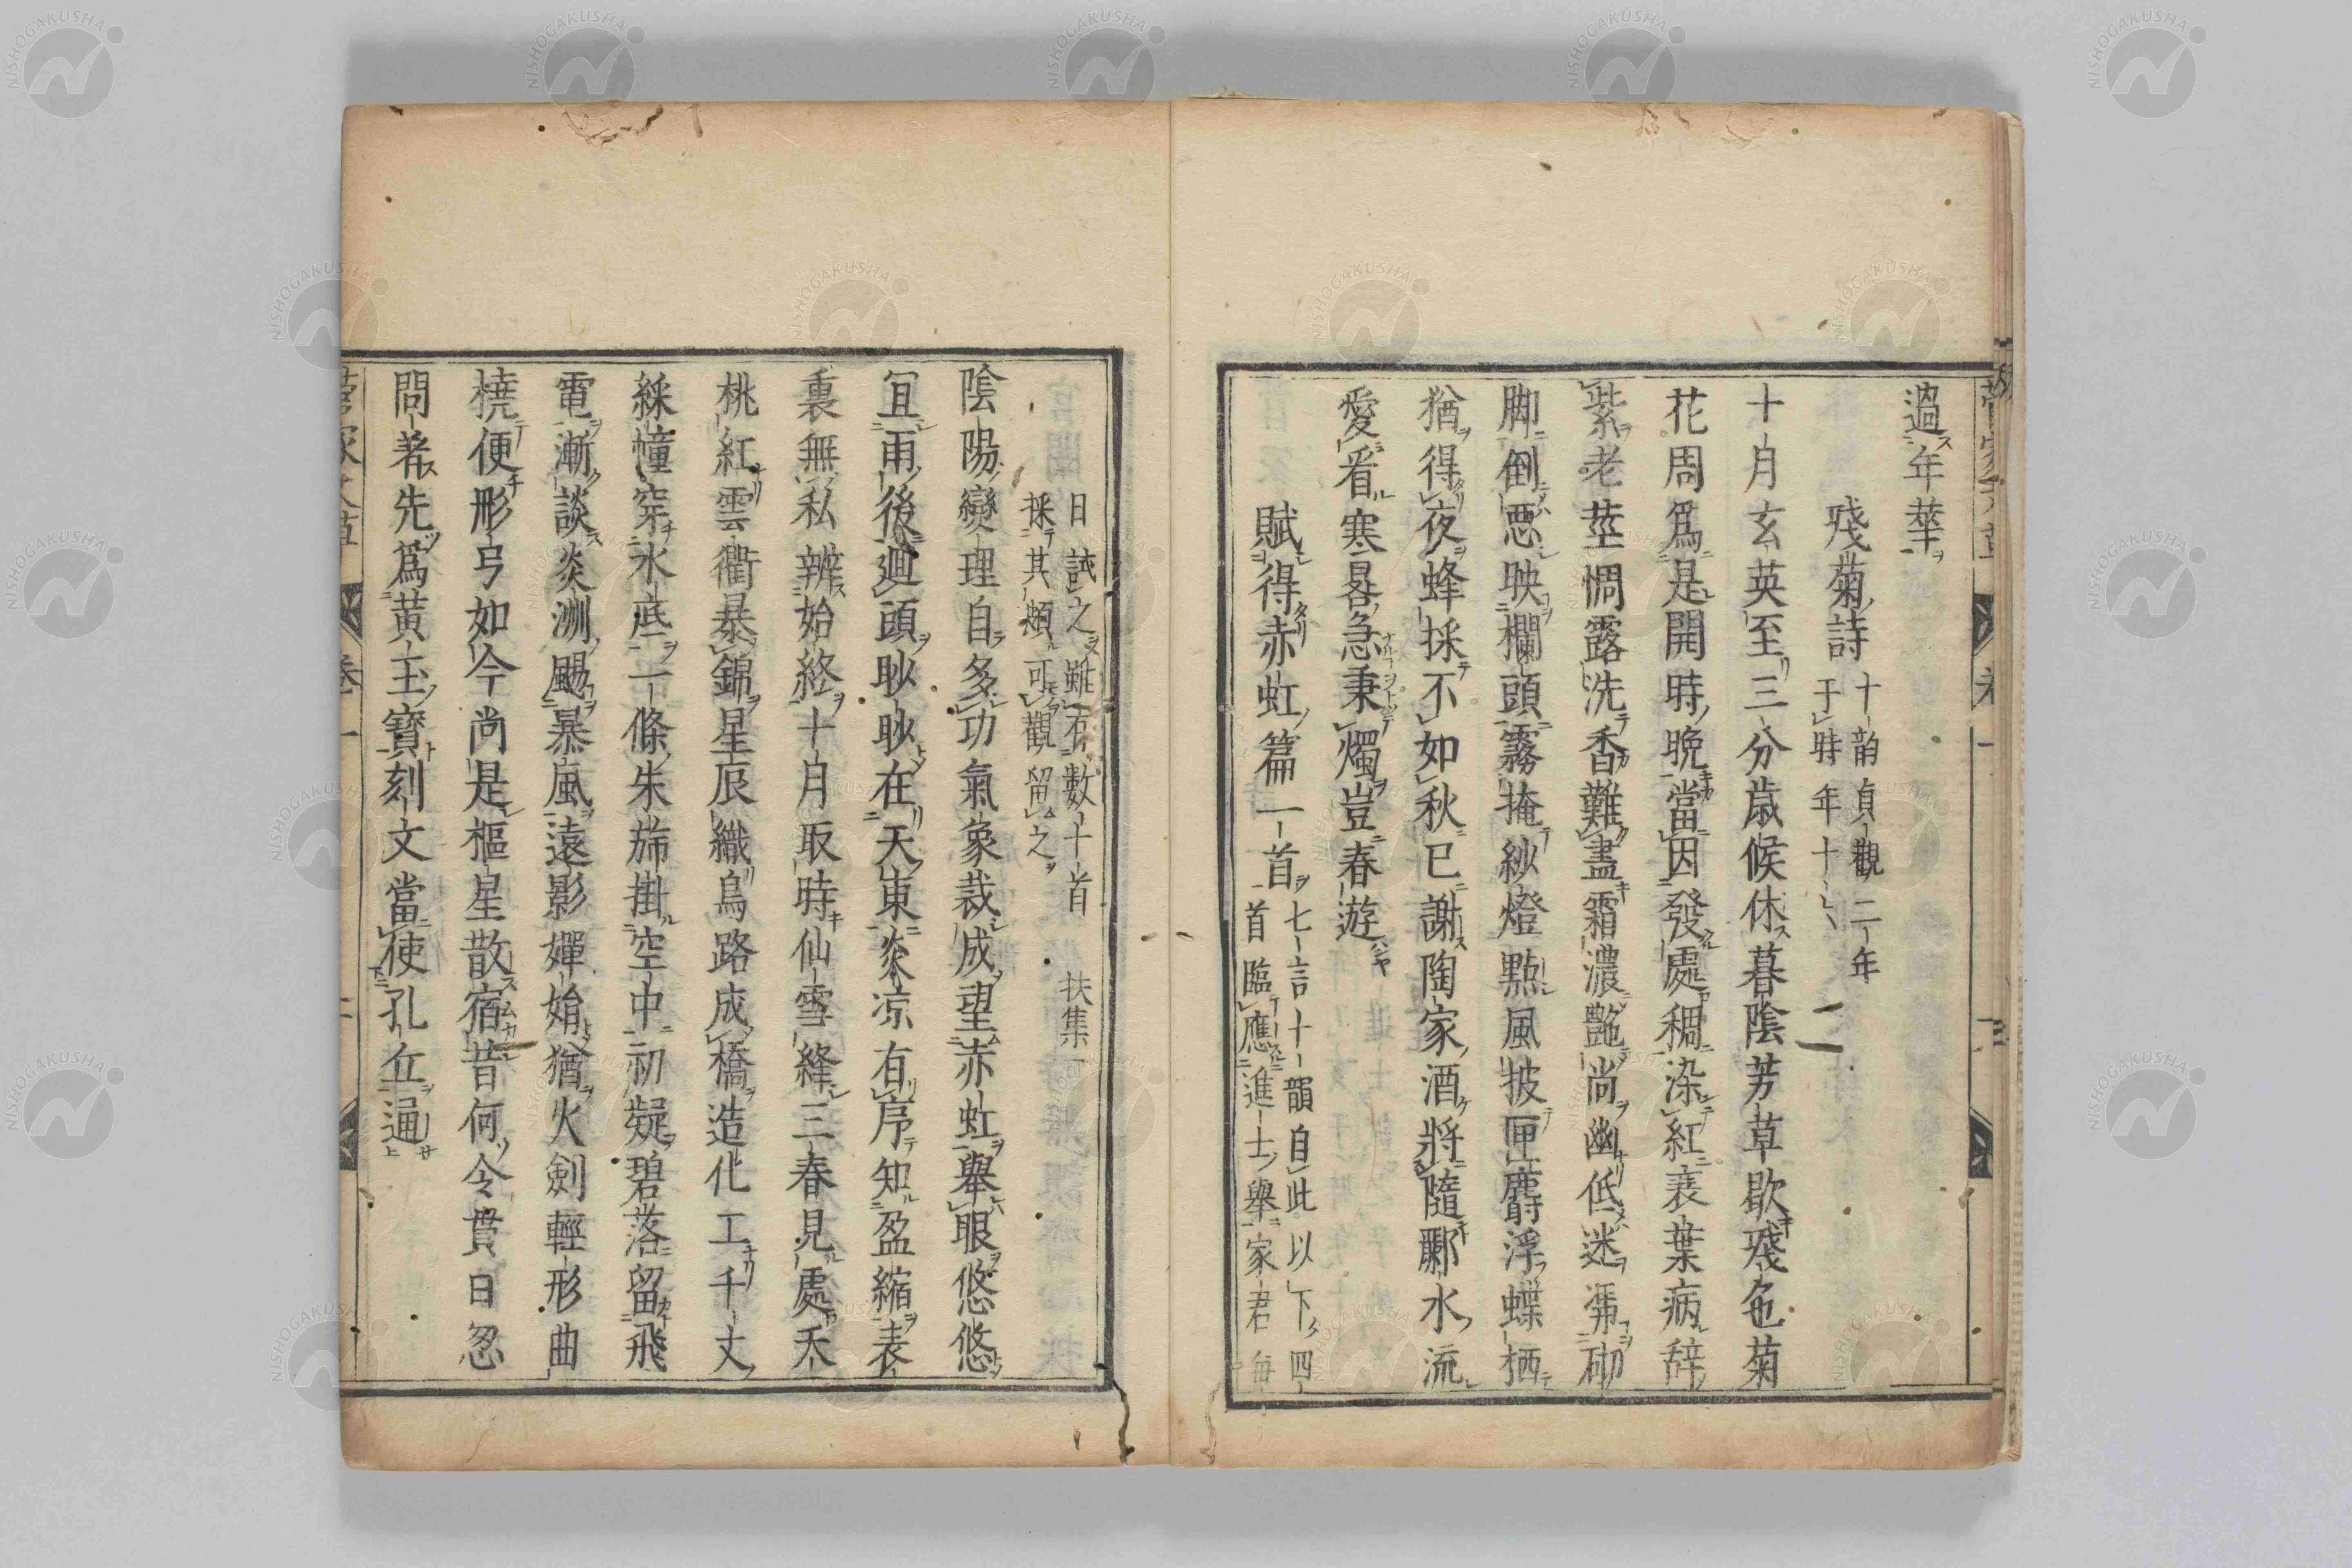 過年華
殘菊詩 十韵貞觀二年
于時年十一
十月玄英至三分歳候休暮陰芳草歇殘色菊
花周爲是開時晩當因發處稠染紅衰葉病辞
紫老莖惆露洗香難盡霜濃艶尚幽低迷馮砌
脚倒惡映欄頭霧掩紗燈點風披匣麝浮蝶栖
猶得夜蜂採不如秋已謝陶家酒將隨酈水流
愛看寒晷急秉燭豈春遊
賦得赤虹篇一首 七言十韻自此以下四
首臨應進士舉家君毎
日試之雖有數十首 扶集
採其頗可觀留之
陰陽變理自多功氣象裁成望赤虹舉眼悠悠
宜雨後廻頭眇眇在天東炎凉有序知盈縮表
裏無私辨始終十月取時仙雪絳三春見處夭
桃紅雲衢暴錦星辰織鳥路成橋造化工千丈
綵幢穿水底一條朱旆掛空中初疑碧落留飛
電漸談炎洲颺暴風遠影嬋娟猶火劍輕形曲
橈便形弓如今尚是樞星散宿昔何令貫日忽
問著先爲黄玉寶刻文當使孔丘通
菅家文草
卷一